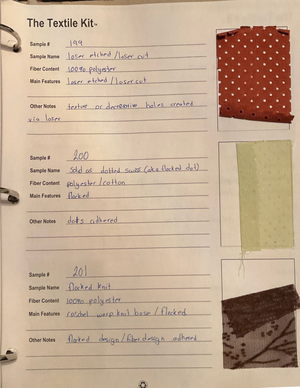 The Textile Kit™
Sample # 199
Sample Name laser etched / laser cut
Fiber Content 100% polyester
Main Features laser etched / laser cut
Other Notes texture or decorative holes created
via laser
Sample # 200
Sample Name sold as dotted swiss (aka flocked dot)
Fiber Content polyester / cotton
Main Features flocked
Other Notes dots adhered
Sample # 201
Sample Name flocked knit
Fiber Content 100% polyester
Main Features raschel warp knit base / flocked
Other Notes flocked design / fiber design adhered